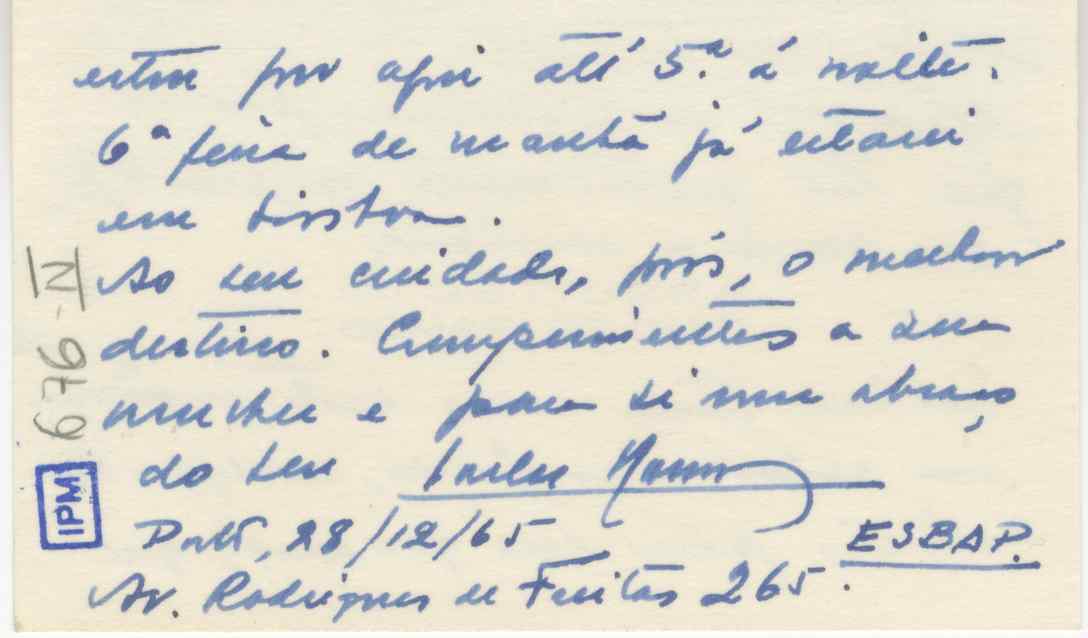 estou por aqui até 5.ª á noite.
6ª feira de manhã já estarei
em Lisboa.
Ao seu cuidado, pois, o melhor
destino. Cumprimentos a sua
mulher e para si um abraço
do seu Carlos
Porto, 28/12/65
ESBAP.
Av. Rodrigues de Freitas 265.
676-IV
IPM